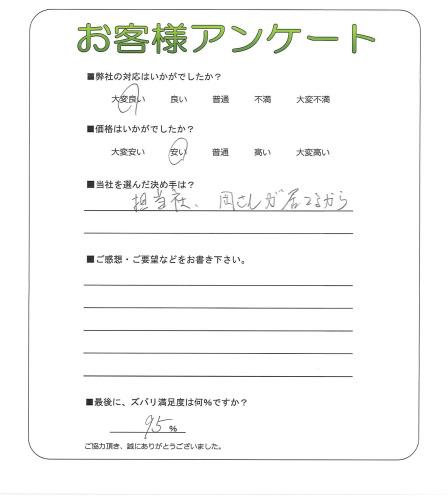 お客様アンケート
■弊社の対応はいかがでしたか？
大変良い 良い 普通 不満 大変不満
■価格はいかがでしたか？
大変安い 安い 普通 高い 大変高い
■当社を選んだ決め手は？
担当社、岡さんが居てるから
■ご感想・ご要望などをお書き下さい。
■最後に、ズバリ満足度は何％ですか？
95 ％
ご協力頂き、誠にありがとうございました。